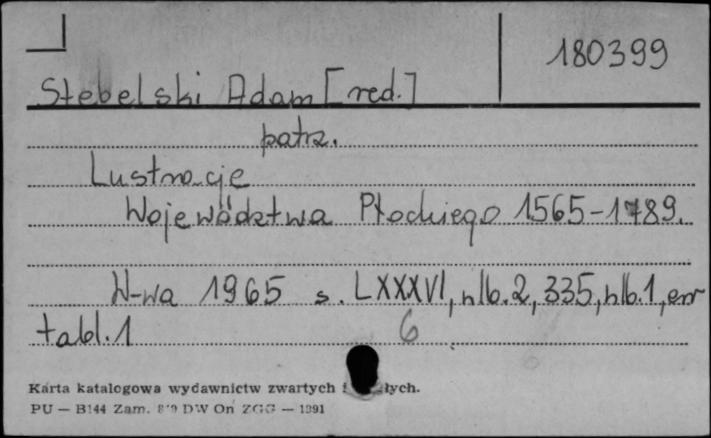 180399
Stebelski Adam [red.]
patrz.
Lustracje
Województwa Płockiego 1565-1789.
W-wa 1965 s. LXXXVI, nlb.2, 335, nlb.1, err
tabl.1 6
Karta katalogowa wydawnictw zwartych
PU — B144 Zam. DW On ZGG — 1391